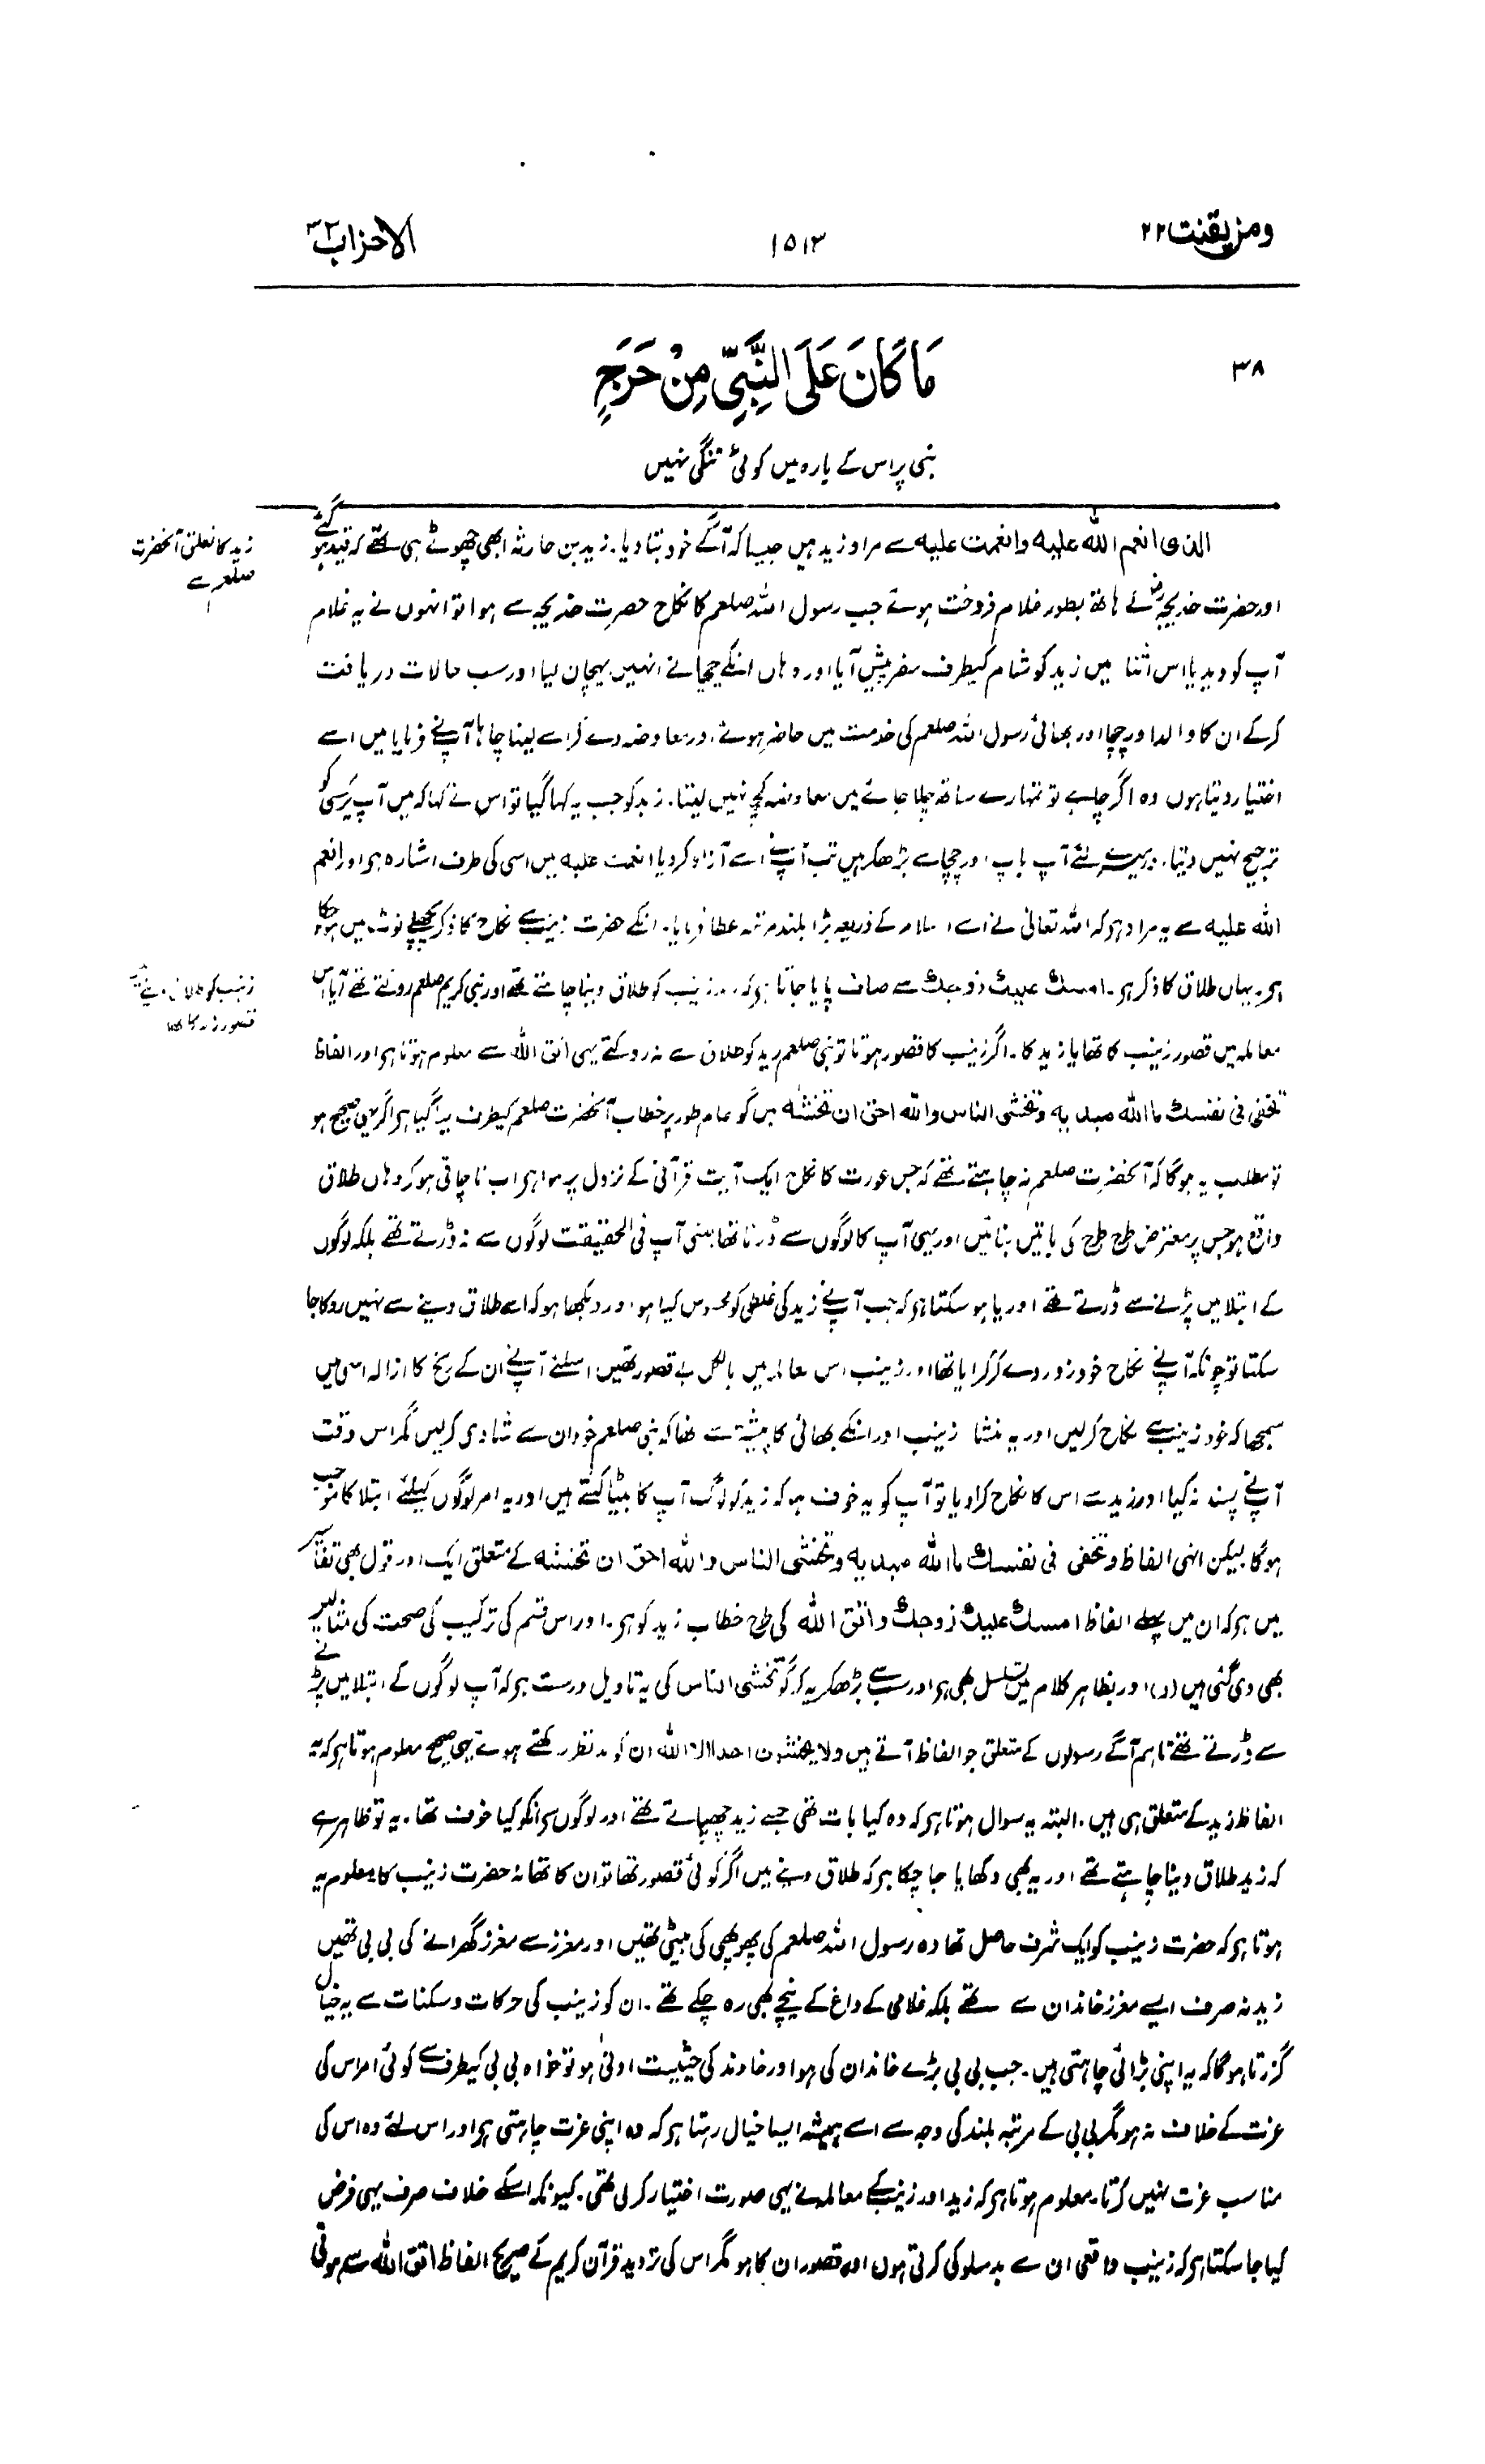 ومن يقنت ٢٢
١٥١٣
الاحزاب ٣٣
٣٨
مَا كَانَ عَلَى النَّبِيِّ مِنْ حَرَجٍ
نبی پر اس کے بارہ میں کوئی تنگی نہیں
الذی انعم اللہ علیہ وانعمت علیہ سے مراد زید ہیں جیسا کہ آگے خود بتا دیا۔ زید بن حارثہ ابھی چھوٹے ہی تھے کہ قید ہو گئے
زید کا تعلق آنحضرت
صلعم سے
اور حضرت خدیجہؓ کے ہاتھ بطور غلام فروخت ہوئے جب رسول اللہ صلعم کا نکاح حضرت خدیجہ سے ہوا تو انہوں نے یہ غلام
آپ کو دیدیا اس اثنا میں زید کو شام کیطرف سفر پیش آیا اور وہاں انکے چچا نے انہیں پہچان لیا اور سب حالات دریافت
کرکے ان کا والد اور چچا اور بھائی رسول اللہ صلعم کی خدمت میں حاضر ہوئے اور معاوضہ دے کر اسے لینا چاہا آپ نے فرمایا میں اسے
اختیار دیتا ہوں وہ اگر چاہے تو تمہارے ساتھ چلا جائے میں معاوضہ کچھ نہیں لیتا۔ زید کو جب یہ کہا گیا تو اس نے کہا کہ میں آپ پر کسی کو
ترجیح نہیں دیتا۔ میرے لئے آپ باپ اور چچا سے بڑھکر ہیں تب آپ نے اسے آزاد کر دیا انعمت علیہ میں اسی کی طرف اشارہ ہے اور انعم
اللہ علیہ سے یہ مراد ہے کہ اللہ تعالیٰ نے اسے اسلام کے ذریعہ بڑا بلند مرتبہ عطا فرمایا۔ انکے حضرت زینب سے نکاح کا ذکر پچھلے نوٹ میں ہو چکا
ہے۔ یہاں طلاق کا ذکر ہے۔ امسک علیک زوجک سے صاف پایا جاتا ہے کہ زینب کو طلاق دینا چاہتے تھے اور نبی کریم صلعم روکتے تھے آیا اس
زینب کو طلاق دینے میں
قصور زید کا تھا
معاملہ میں قصور زینب کا تھا یا زید کا۔ اگر زینب کا قصور ہوتا تو نبی صلعم زید کو طلاق سے نہ روکتے یہی اتق اللہ سے معلوم ہوتا ہے اور الفاظ
تخفی فی نفسک ما اللہ مبدیہ وتخشی الناس واللہ احق ان تخشٰہ میں گو عام طور پر خطاب آنحضرت صلعم کیطرف لیا گیا ہے اگر یہی صحیح ہو
تو مطلب یہ ہوگا کہ آنحضرت صلعم نہ چاہتے تھے کہ جس عورت کا نکاح ایک آیت قرآنی کے نزول پر ہوا ہے اب ناچاقی ہو کر وہاں طلاق
واقع ہو جس پر معترض طرح طرح کی باتیں بنائیں اور یہی آپ کا لوگوں سے ڈرنا تھا یعنی آپ فی الحقیقت لوگوں سے نہ ڈرتے تھے بلکہ لوگوں
کے ابتلا میں پڑنے سے ڈرتے تھے اور یا ہو سکتا ہے کہ جب آپ نے زید کی غلطی کو محسوس کیا ہو اور دیکھا ہو کہ اسے طلاق دینے سے نہیں روکا جا
سکتا تو چونکہ آپ نے نکاح خود زور دے کر کرایا تھا اور زینب اس معاملہ میں بالکل بے قصور تھیں اسلئے آپ نے ان کے رنج کا ازالہ اسی میں
سمجھا کہ خود زینب سے نکاح کرلیں اور یہ منشا زینب اور انکے بھائی کا پیشتر سے تھا کہ نبی صلعم خود ان سے شادی کرلیں مگر اس وقت
آپ نے پسند نہ کیا اور زید سے اس کا نکاح کرا دیا تو آپ کو یہ خوف ہو کہ زید کو لوگ آپ کا بیٹا کہتے ہیں اور یہ امر لوگوں کیلئے ابتلا کا موجب
ہوگا لیکن انہی الفاظ وتخفی فی نفسک ما اللہ مبدیہ وتخشی الناس واللہ احق ان تخشٰہ کے متعلق ایک اور قول بھی تفاسیر
میں ہے کہ ان میں پہلے الفاظ امسک علیک زوجک واتق اللہ کی طرح خطاب زید کو ہے۔ اور اس قسم کی ترکیب کی صحت کی مثالیں
بھی دی گئی ہیں (ر) اور بظاہر کلام میں تسلسل بھی ہے اور سب سے بڑھکر یہ کہ گو تخشی الناس کی یہ تاویل درست ہے کہ آپ لوگوں کے ابتلا میں پڑنے
سے ڈرتے تھے تاہم آگے رسولوں کے متعلق جو الفاظ آتے ہیں ولا یخشون احدا الا اللہ ان کو مد نظر رکھتے ہوئے یہی صحیح معلوم ہوتا ہے کہ یہ
الفاظ زید کے متعلق ہی ہیں۔ البتہ یہ سوال ہوتا ہے کہ وہ کیا بات تھی جسے زید چھپاتے تھے اور لوگوں سے انکو کیا خوف تھا۔ یہ تو ظاہر ہے
کہ زید طلاق دینا چاہتے تھے اور یہ بھی دکھایا جا چکا ہے کہ طلاق دینے میں اگر کوئی قصور تھا تو ان کا تھا نہ حضرت زینب کا معلوم یہ
ہوتا ہے کہ حضرت زینب کو ایک شرف حاصل تھا وہ رسول اللہ صلعم کی پھوپھی کی بیٹی تھیں اور معزز سے معزز گھرانے کی بی بی تھیں
زید نہ صرف ایسے معزز خاندان سے تھے بلکہ غلامی کے داغ کے نیچے بھی رہ چکے تھے۔ ان کو زینب کی حرکات و سکنات سے یہ خیال
گزرتا ہوگا کہ یہ اپنی بڑائی چاہتی ہیں۔ جب بی بی بڑے خاندان کی ہو اور خاوند کی حیثیت ادنیٰ ہو تو خواہ بی بی کیطرف سے کوئی امر اس کی
عزت کے خلاف نہ ہو مگر بی بی کے مرتبہ بلند کی وجہ سے اسے ہمیشہ ایسا خیال رہتا ہے کہ وہ اپنی عزت چاہتی ہے اور اس لئے وہ اس کی
مناسب عزت نہیں کرتا۔ معلوم ہوتا ہے کہ زید اور زینب کے معاملہ نے یہی صورت اختیار کر لی تھی۔ کیونکہ اسکے خلاف صرف یہی فرض
کیا جا سکتا ہے کہ زینب واقعی ان سے بدسلوکی کرتی ہوں اور قصور ان کا ہو مگر اس کی تردید قرآن کریم کے صریح الفاظ اتق اللہ سے ہوتی